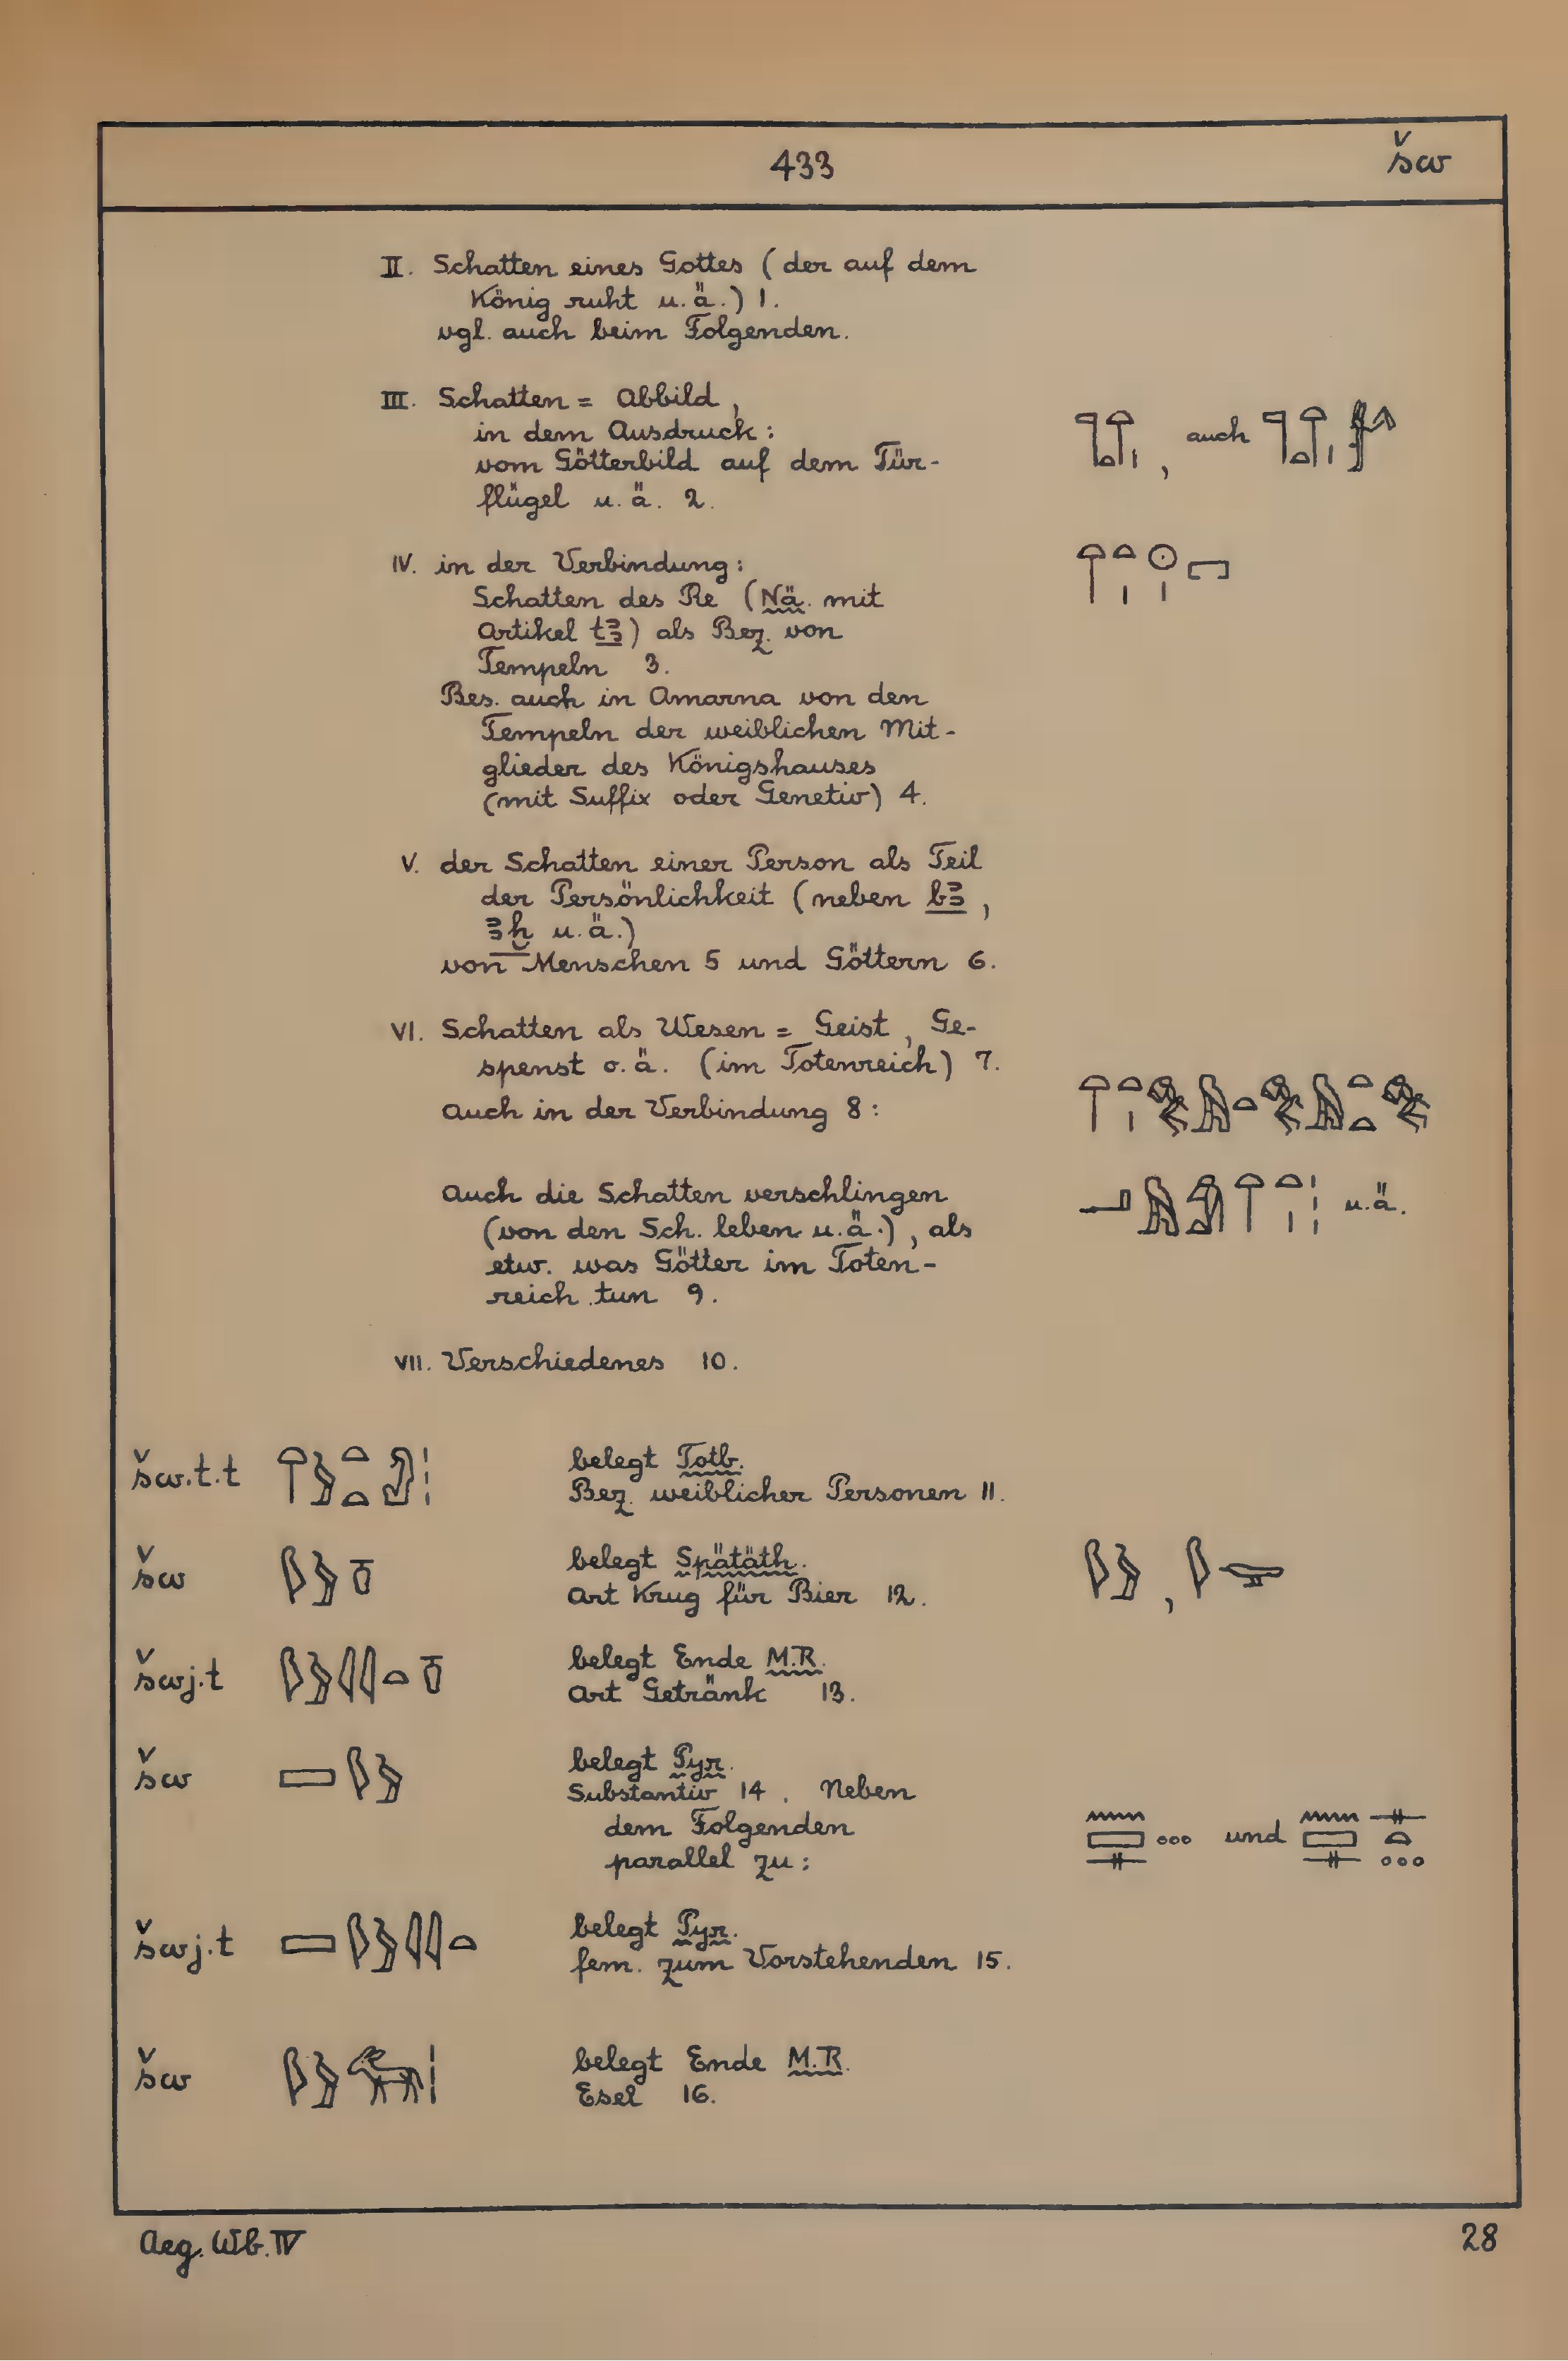 433 šw
II. Schatten eines Gottes (der auf dem
König ruht u.ä.) 1.
vgl. auch beim Folgenden.
III. Schatten = Abbild,
in dem Ausdruck:
, auch
vom Götterbild auf dem Tür-
flügel u.ä. 2.
IV. in der Verbindung:
Schatten des Re (Nä. mit
Artikel tꜣ) als Bez. von
Tempeln 3.
Bes. auch in Amarna von den
Tempeln der weiblichen Mit-
glieder des Königshauses
(mit Suffix oder Genetiv) 4.
V. der Schatten einer Person als Teil
der Persönlichkeit (neben bꜣ,
ꜣḫ u.ä.)
von Menschen 5 und Göttern 6.
VI. Schatten als Wesen = Geist, Ge-
spenst o.ä. (im Totenreich) 7.
Auch in der Verbindung 8:
Auch die Schatten verschlingen u.ä.
(von den Sch. leben u.ä.), als
etw. was Götter im Toten-
reich tun 9.
VII. Verschiedenes 10.
šw.t.t belegt Totb.
Bez. weiblicher Personen 11.
šw belegt Spätäth.
Art Krug für Bier 12.
šwj.t belegt Ende M.R.
Art Getränk 13.
šw belegt Pyr.
Substantiv 14. Neben
dem Folgenden
parallel zu: und
šwj.t belegt Pyr.
fem. zum Vorstehenden 15.
šw belegt Ende M.R.
Esel 16.
Aeg. Wb. IV 28